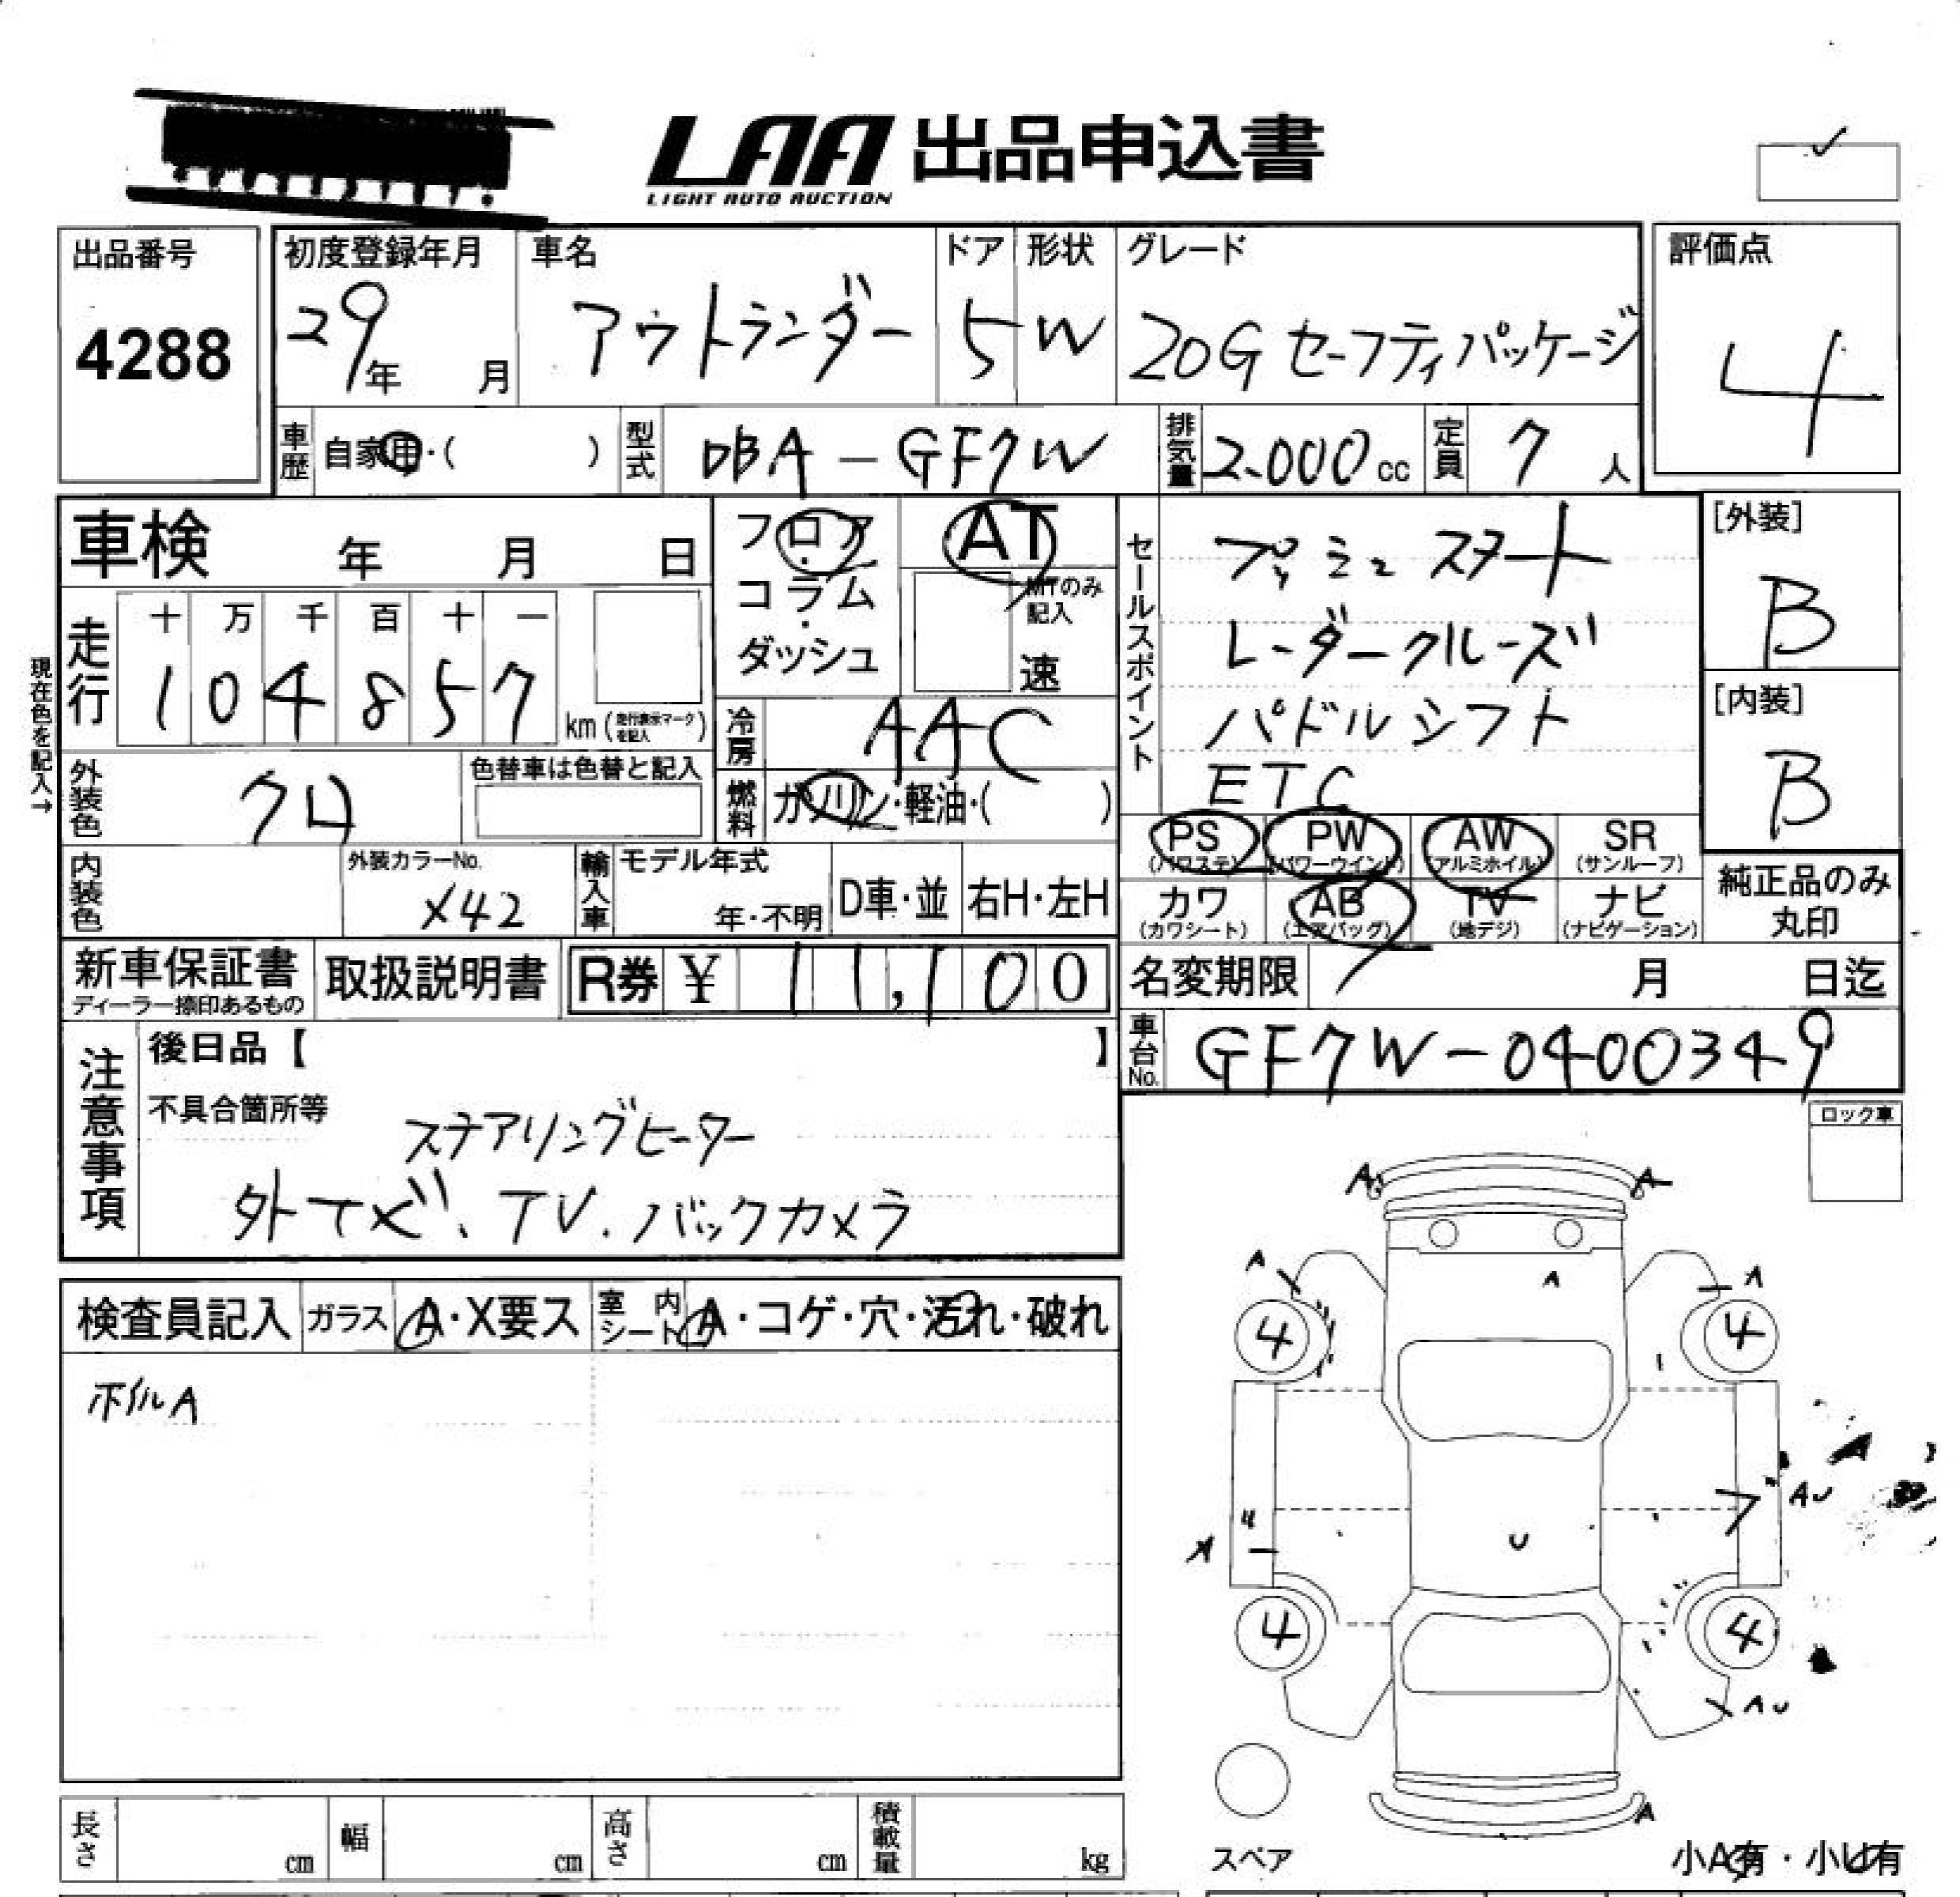 LAA 出品申込書
LIGHT AUTO AUCTION
出品番号
4288
初度登録年月
29年 月
車名
アウトランダー
ドア
5
形状
W
グレード
20G セーフティパッケージ
評価点
4
車歴 自家用・( )
型式 DBA-GF7W
排気量 2.000cc
定員 7人
車検 年 月 日
フロア・コラム・ダッシュ
AT
MTのみ記入
速
セールスポイント
プッシュスタート
レーダークルーズ
パドルシフト
ETC
[外装]
B
[内装]
B
現在色を記入→
走行
十 万 千 百 十 一
1 0 4 8 5 7
km(走行表示マークを記入)
冷房 AAC
燃料 ガソリン・軽油・( )
外装色 クロ
色替車は色替と記入
PS (パワステ)
PW (パワーウインド)
AW (アルミホイル)
SR (サンルーフ)
カワ (カワシート)
AB (エアバッグ)
TV (地デジ)
ナビ (ナビゲーション)
純正品のみ
丸印
内装色
外装カラーNo.
X42
輸入車
モデル年式
年・不明
D車・並
右H・左H
新車保証書
ディーラー捺印あるもの
取扱説明書
R券 ¥ 11,100
名変期限 月 日迄
車台No. GF7W-0400349
注意事項
後日品【 】
不具合箇所等
ステアリングヒーター
外ナビ、TV.バックカメラ
ロック車
検査員記入
ガラス A・X要ス
室内シート A・コゲ・穴・汚れ・破れ
ホイルA
A A
A A A
4 4
AU
4 U
A
4 4
AU
A
スペア
小A有・小U有
長さ cm
幅 cm
高さ cm
積載量 kg